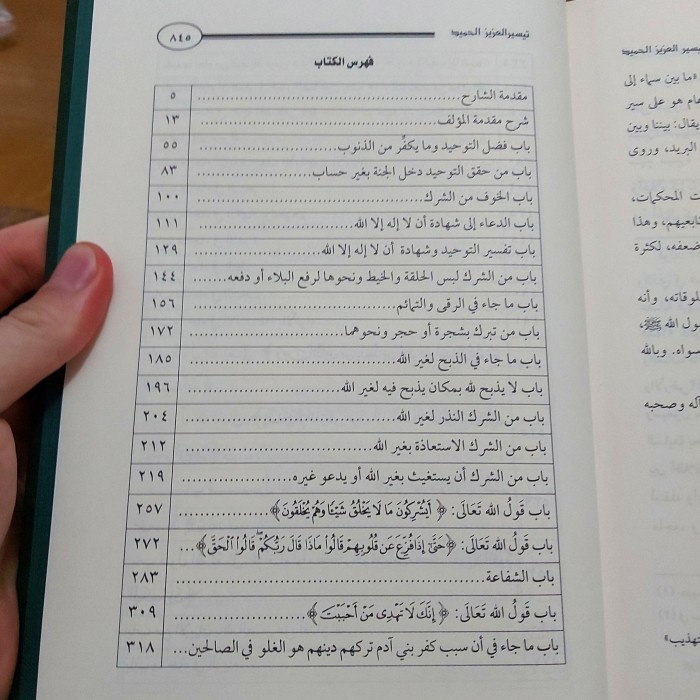 تيسير العزيز الحميد
٨٤٥
فهرس الكتاب
مقدمة الشارح ٥
شرح مقدمة المؤلف ١٣
باب فضل التوحيد وما يكفِّر من الذنوب ٥٥
باب من حقق التوحيد دخل الجنة بغير حساب ٨٣
باب الخوف من الشرك ١٠٠
باب الدعاء إلى شهادة أن لا إله إلا الله ١١١
باب تفسير التوحيد وشهادة أن لا إله إلا الله ١٢٩
باب من الشرك لبس الحلقة والخيط ونحوها لرفع البلاء أو دفعه ١٤٤
باب ما جاء في الرقى والتمائم ١٥٦
باب من تبرك بشجرة أو حجر ونحوهما ١٧٢
باب ما جاء في الذبح لغير الله ١٨٥
باب لا يذبح لله بمكان يذبح فيه لغير الله ١٩٦
باب من الشرك النذر لغير الله ٢٠٤
باب من الشرك الاستعاذة بغير الله ٢١٢
باب من الشرك أن يستغيث بغير الله أو يدعو غيره ٢١٩
باب قَولُ الله تَعَالَى: ﴿أَيُشْرِكُونَ مَا لَا يَخْلُقُ شَيْئًا وَهُمْ يُخْلَقُونَ﴾ ٢٥٧
باب قَولُ الله تَعَالَى: ﴿حَتَّىٰ إِذَا فُزِّعَ عَن قُلُوبِهِمْ قَالُوا۟ مَاذَا قَالَ رَبُّكُمْ ۖ قَالُوا۟ الْحَقَّ﴾ ٢٧٢
باب الشفاعة ٢٨٣
باب قَولُ الله تَعَالَى: ﴿إِنَّكَ لَا تَهْدِى مَنْ أَحْبَبْتَ﴾ ٣٠٩
باب ما جاء في أن سبب كفر بني آدم تركهم دينهم هو الغلو في الصالحين ٣١٨
تيسير العزيز
«ما بين سماء إلى
عام هو على سير
يقال: بيننا وبين
البريد، وروى
المحكمات،
وهذا
لكثرة
وأنه
الله ﷺ،
سواه. وبالله
آله وصحبه